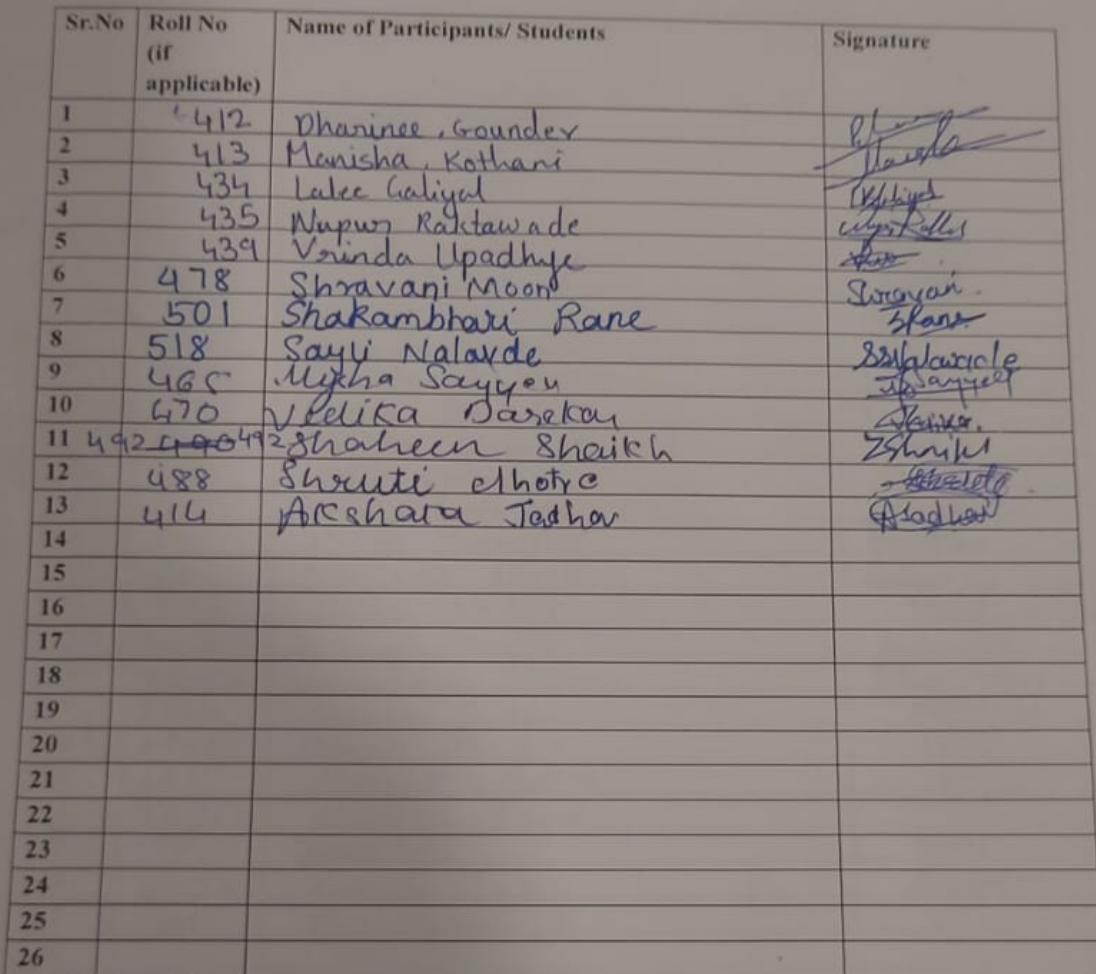 Sr.No Roll No Name of Participants/ Students Signature
(if
applicable)
1 412 Dharinee . Gounder
2 413 Manisha . Kothani
3 434 Lalee Galiyal
4 435 Nupur Raktawade
5 439 Vrinda Upadhye
6 478 Shravani Moon Shravani
7 501 Shakambhari Rane SRane
8 518 Sayli Nalavde SSNalawade
9 465 Sayyed
10 470 Vedika Darekar
11 492 490 492 Shaheen Shaikh ZShaikh
12 488 Shruti dhotre
13 414 Akshara Jadhav AJadhav
14
15
16
17
18
19
20
21
22
23
24
25
26